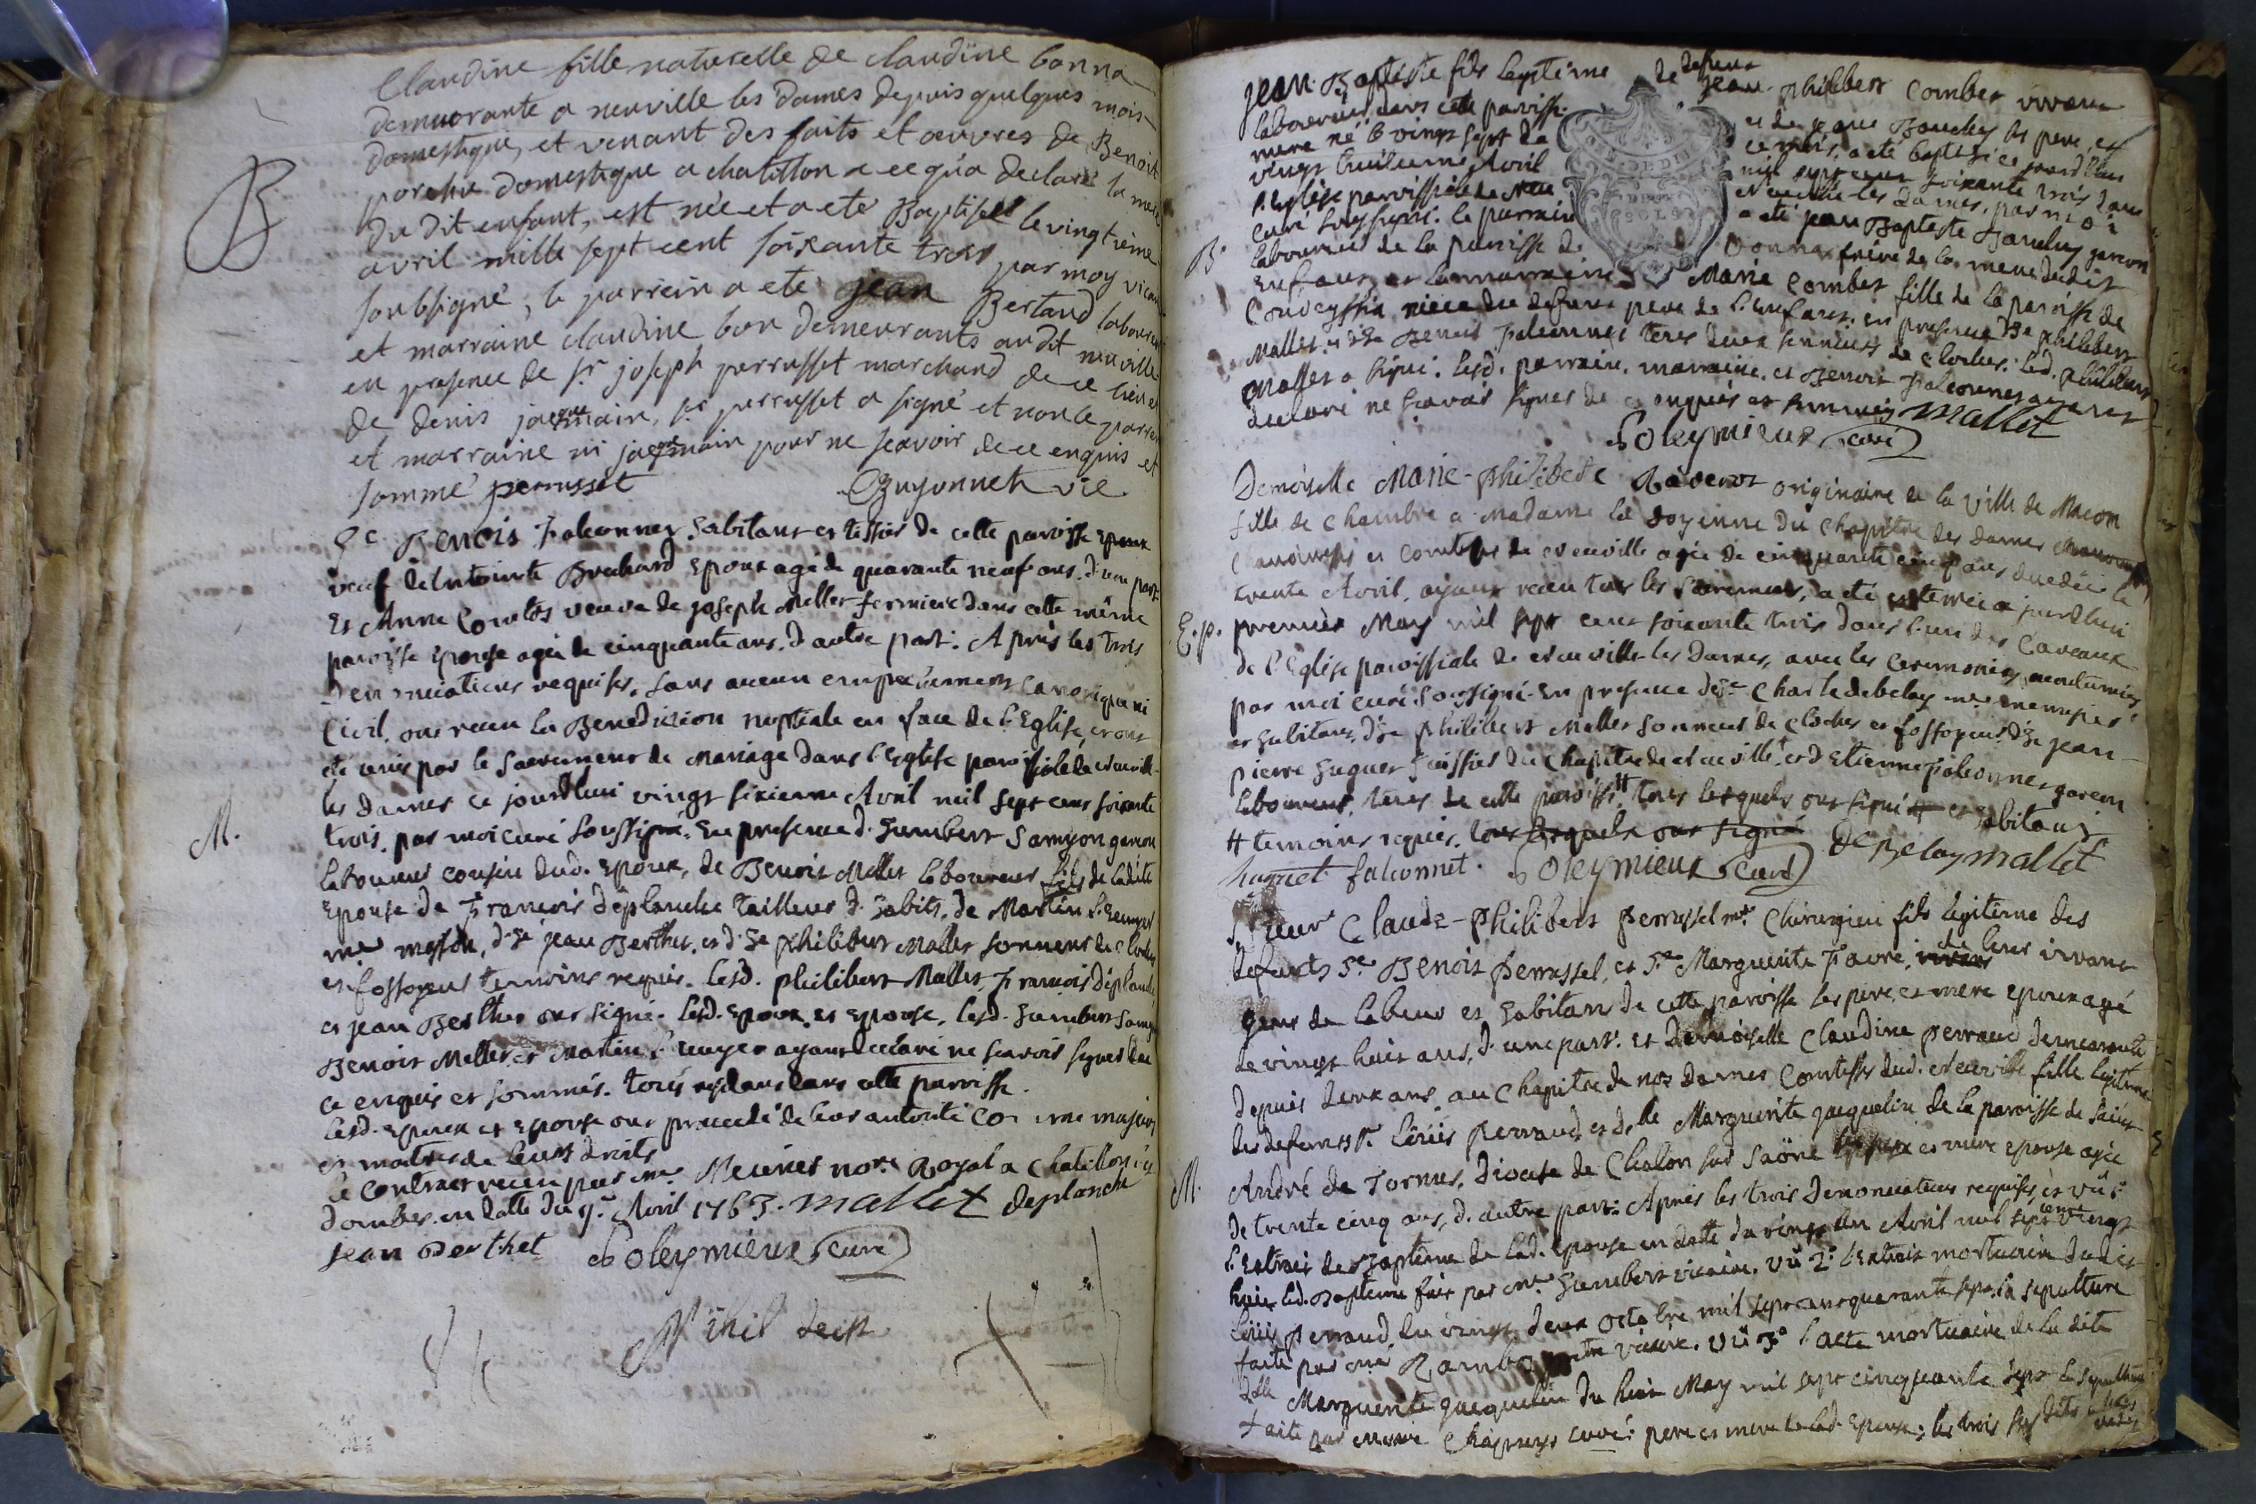 Claudine fille naturelle de claudine bonna
demuorante a neuville les dames depuis quelques mois
domestique, et venant des faits et œuvres de Benoit
porchu domestique a chatillon a ce qu'a declaré la mere
du dit enfant, est née et a eté Baptisée le vingtième
avril mille sept cent soixante trois par moy vicaire
soubsigné, le parrein a eté jean Bertand laboureur
et marraine claudine bon demeurants au dit neuville
en presence de sr joseph perrusset marchand de ce lieu et
de denis jacquemain, sr perrusset a signé et non le parrein
et marraine ni jacquemain pour ne scavoir de ce enquis et
sommé perrusset Guyonnet vic
B
Sr Benois Falconner habitant et tissier de cette paroisse Epoux
veuf de Antoinette Brachard Epoux agé de quarante neuf ans, d'une part
Et Anne Courtos veuve de joseph Meller fermiere dans cette même
paroisse Epouse agée de cinquante ans, d'autre part. Après les trois
denonciations requises, sans aucun empechement canonique ni
civil, ont recu la Benediction nuptiale en face de l'Eglise, et ont
eté unis par le sacrement de Mariage dans l'Eglise paroissiale de neuville
les Dames ce jourd'hui vingt sixieme Avril mil sept cent soixante
trois, par moi curé soussigné. En presence d'humbert Samyon garcon
laboureur cousin dud. Epoux, de Benois Meller laboureur fils de ladite
Epouse de Francois déplanche tailleur d'habits, de Martin
me masson, d'he jean Berthet, et d'he philibert Mallet sonneur de cloches
et fossoyeur temoins requis. Lesd. philibert Mallet, Francois déplanche,
et jean Berthet ont signé. Lesd. Epoux et Epouse, lesd. humbert Samyon
Benois Meller et Martin ayant declaré ne scavoir signer de
ce enquis et sommés. tous residans dans cette paroisse.
Lesd. Epoux et Epouse ont procedé de leur autorité comme majeurs
et maitres de leurs droits
Le contract recu par me Meunier nore Royal a Chatillon
dombes en datte du 9e Avril 1763. mallet deplanche
jean Berthet Soleymieux curé
M.
Nihil deest
jean-Baptiste fils legitime de defunt jean-philibert Combet vivant
laboureur dans cette paroisse et de jeane Bouchy les pere et
mere né le vingt sept de ce mois, a eté baptisé ce jourd'hui
vingt huitieme Avril mil sept cent soixante trois dans
l'Eglise paroissiale de Neu neuville les dames, par moi
curé soussigné. Le parrain a eté jean Baptiste Bouchy garcon
laboureur de la paroisse de frere de la mere dudit
Enfant, et la marraine Marie Combet fille de la paroisse de
Condeyssia niece du defunt pere de l'Enfant. En presence d'he philibert
Mallet et d'he Benois Falconnet tous deux sonneurs de cloches. Led. philibert
Mallet a signé. Lesd. parrain, marraine, et Benois Falconnet ayant
declaré ne scavoir signer de ce enquis et sommés mallet
Soleymieux curé
B.
Demoiselle Marie-philiberte originaire de la ville de Macon
fille de chambre a Madame la doyenne du chapitre des dames
chanoinesses et comtesses de neuville agée de cinquante cinq ans decedée le
trente Avril, ayant recu tous les sacremens, a eté enterrée aujourd'hui
premier May mil sept cent soixante trois dans l'un des Caveaux
de l'Eglise paroissiale de neuville les dames, avec les ceremonies accoutumées
par moi curé soussigné. En presence de Sr Charle debelay me menuisier
et habitant, d'he philibert Mallet sonneur de cloches et fossoyeur, d'he jean-
pierre huguet huissier du chapitre de neuville, et d'Etienne falconnet garcon
laboureur, tous de cette paroisse tous lesquels ont signé et habitans
temoins requis, tous lesquels ont signé DeBelay mallet
huguet falconnet. Soleymieux curé
E.p.
Sieur Claude-philibert Perrussel me Chirurgien fils legitime des
defunts Sr Benois Perrussel, et Dme Marguerite Favre, de leur vivant
gens de labeur et habitans de cette paroisse les pere et mere epoux agé
de vingt huit ans, d'une part. et Demoiselle Claudine Perraud demeurante
depuis deux ans au chapitre de nos dames Comtesses dud. neuville fille legitime
des defunts Sr Loüis Perraud, et delle Marguerite jacquelin de la paroisse de Saint
André de Tornus, Diocese de Chalon sur Saône les pere et mere epouse agée
de trente cinq ans, d'autre part. Après les trois denonciations requises, et vû 1°
l'Extrait de Baptême de lad. epouse en datte du vingt un Avril mil sept cent vingt
huit led. Bapteme fait par me humbert vicaire. Vû 2° l'Extrait mortuaire dudit
Loüis Perraud du vingt deux octobre mil sept cent quarante sept, la sepulture
faite par me vicaire. Vû 3° l'acte mortuaire de la dite
Delle Marguerite jacquelin du huit May mil sept cinquante sept la sepulture
faite par curé: pere et mere de lad. Epouse; les trois
M.